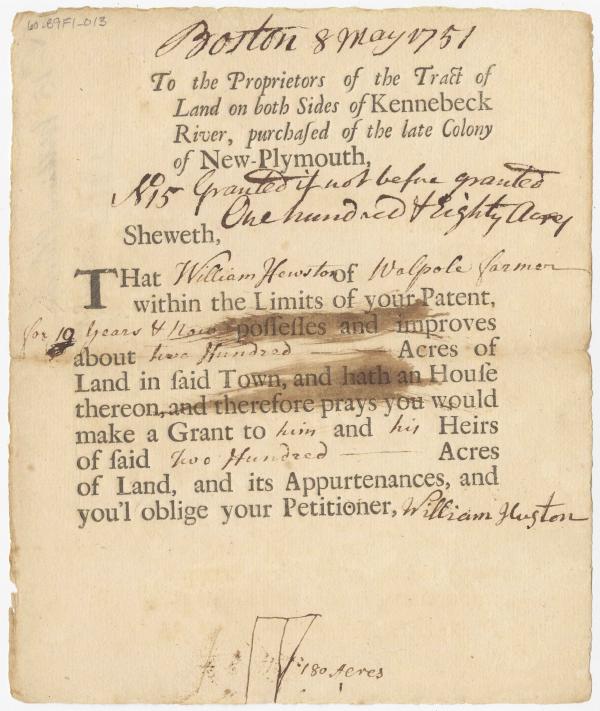 60-89F1-013
Boston 8 May 1751
To the Proprietors of the Tract of
Land on both Sides of Kennebeck
River, purchaſed of the late Colony
of New-Plymouth,
No 15 Granted if not before granted
One hundred & Eighty Acres
Sheweth,
THat William Hewston of Walpole farmer
within the Limits of your Patent,
for 19 Years & now poſſeſſes and improves
about two Hundred Acres of
Land in ſaid Town, and hath an Houſe
thereon, and therefore prays you would
make a Grant to him and his Heirs
of ſaid Two Hundred Acres
of Land, and its Appurtenances, and
you'l oblige your Petitioner, William Huston
180 Acres